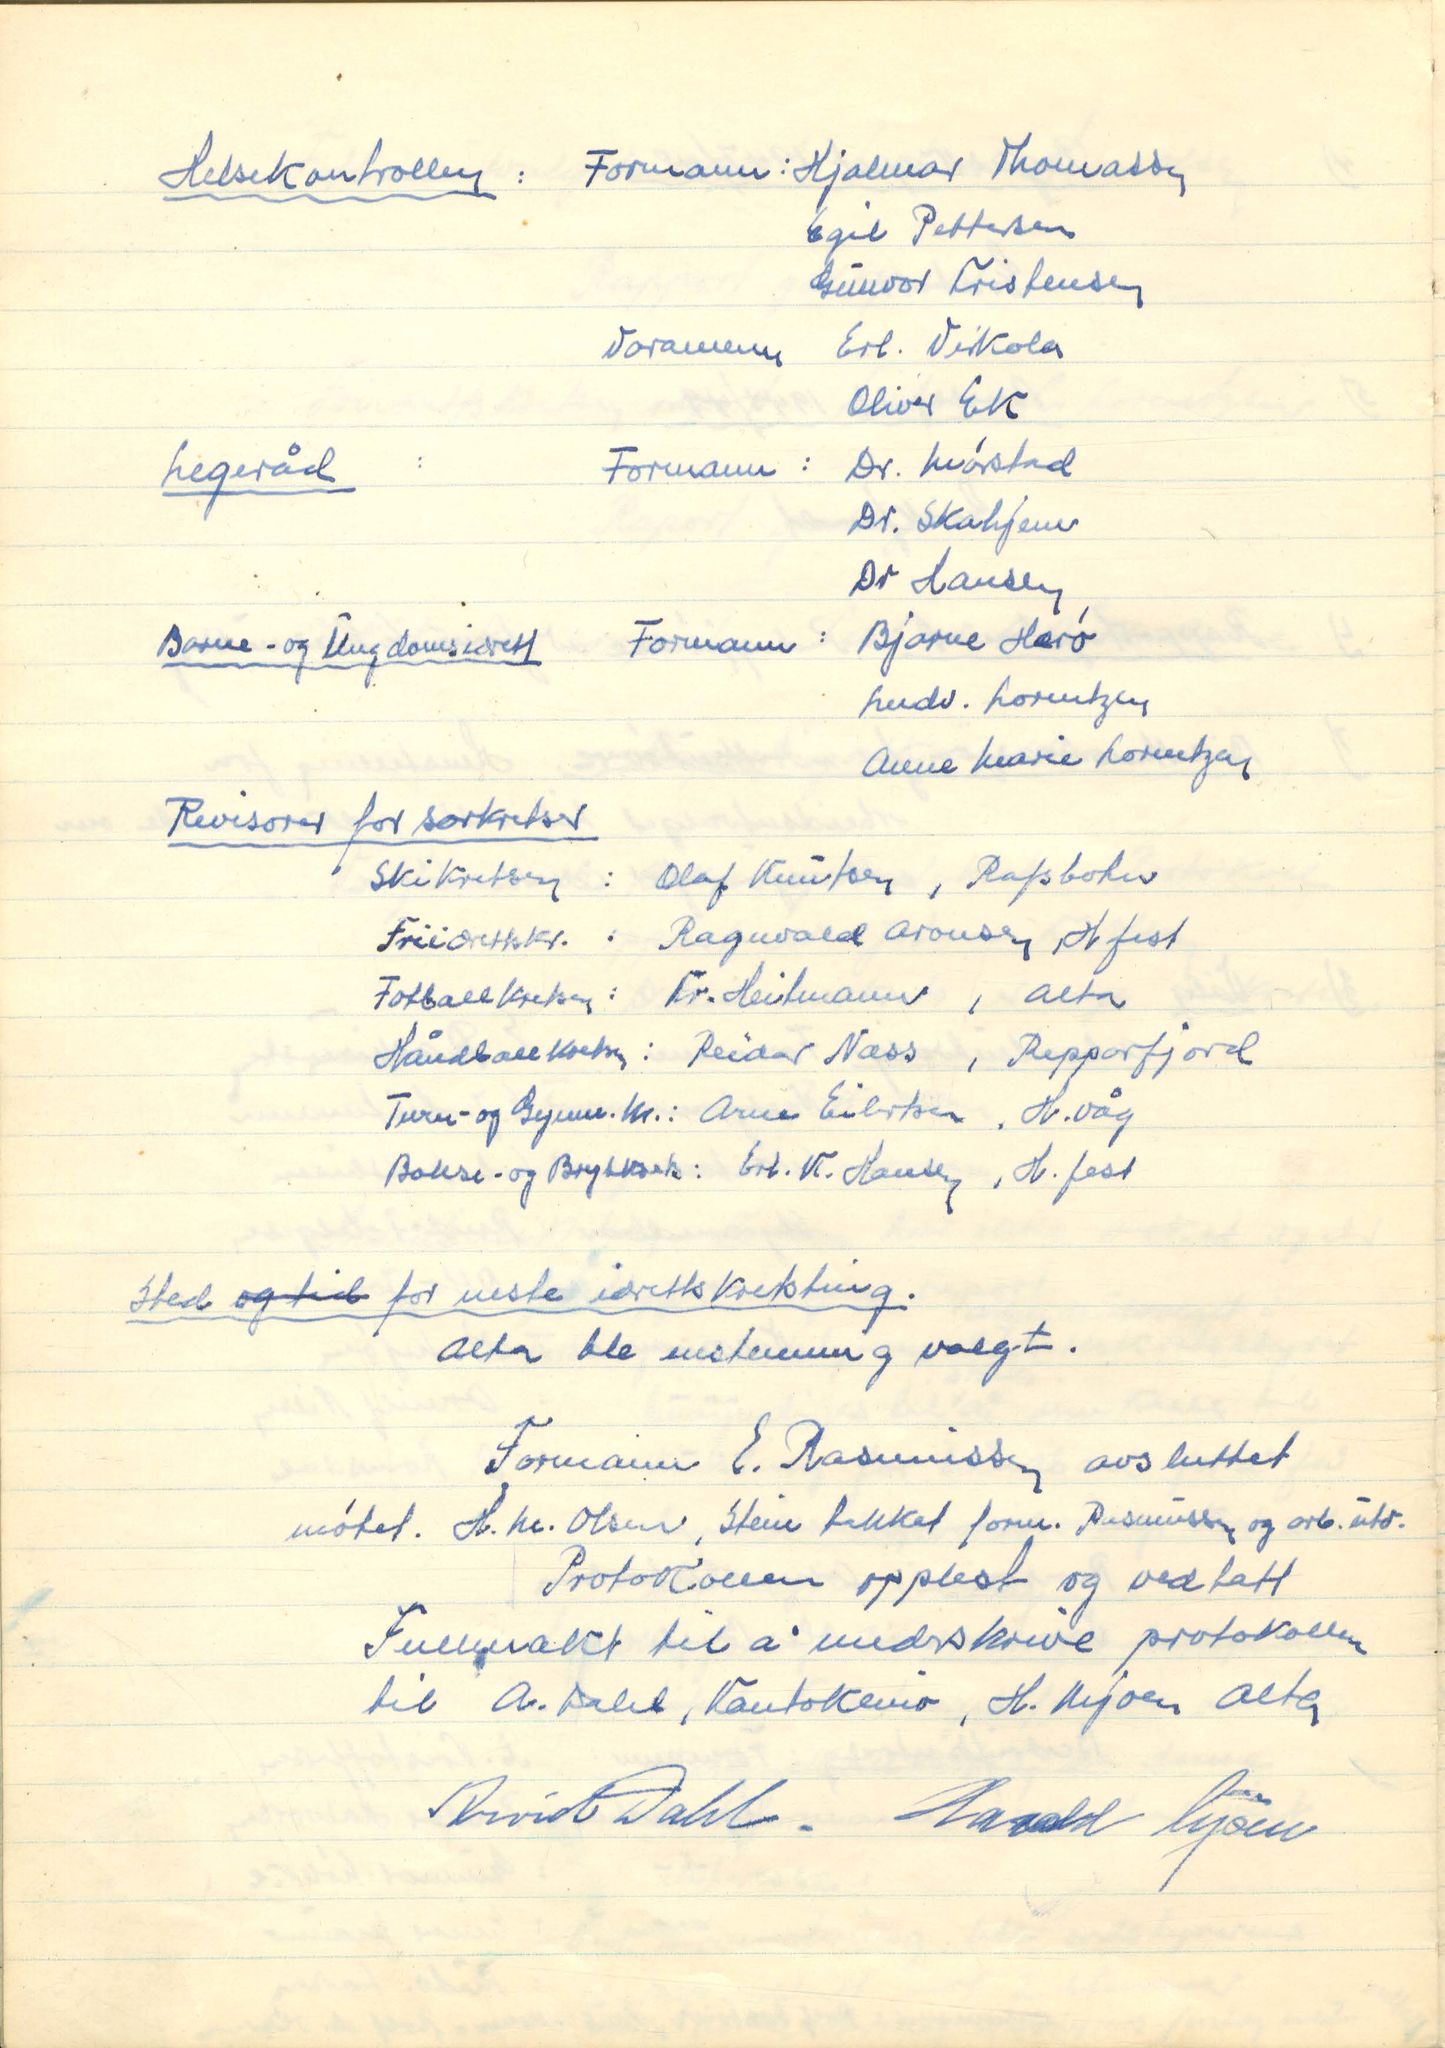 Helsekontrollen : Formann : Hjalmar Thomassen
Egil Pettersen
Gunvor Kristensen
Varamenn Erl. Virkola
Oliver Ek
Legeråd : Formann : Dr. Mørstad
Dr. Skahjem
Dr Hansen
Barne - og Ungdomsidrett Formann : Bjarne Herø
Ludv. Lorentzen
Anne Marie Lorentzen
Revisorer for særkretser
Skikretsen : Olaf Knutsen , Rafsbotn
Friidrettskr. : Ragnvald Aronsen , H.fest
Fotballkretsen : Kr. Heitmann , Alta
Håndballkretsen : Reidar Næss , Repparfjord
Turn- og Gymn. kr. : Arne Eilertsen , H.våg
Bokse- og Brytekrets : Erl. K. Hansen , H. fest
Sted og tid for neste idrettskretsting.
Alta ble enstemmig valgt.
Formann E. Rasmussen avsluttet
møtet. H. M. Olsen, Stein takket form. Rasmussen og arb. utv.
Protokollen opplest og vedtatt
Fullmakt til å underskrive protokollen
til A. Dahl, Kautokeino, H. Mjøen Alta
Arvid Dahl. Harald Mjøen